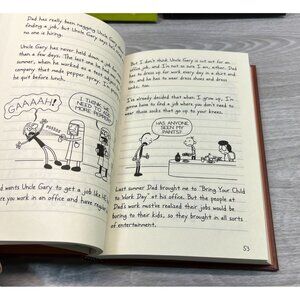 Dad has really been nagging Uncle Gary
finding a job, but Uncle Gary says
no one is hiring.
Uncle Gary has never held down a job
a few days. The last one he
summer, when he worked as a test
company that made pepper spray. I
he quit before lunch.
GAAAAH!
I THINK WE
NEED A LITTLE
MORE PEPPER.
wants Uncle Gary to get a job like
you work in an office and have regular
But I don't think Uncle Gary is cut out for an
office job, and I'm not so sure I am, either. Dad
has to dress up for work every day in a shirt and
tie, and he has to wear dress shoes and dress
socks, too.
I've already decided that when I grow up, I'm
gonna have to find a job where you don't need to
wear those socks that go up to your knees.
HAS ANYONE
SEEN MY
PANTS?
Last summer Dad brought me to "Bring Your Child
to Work Day" at his office. But the people at
Dad's work must've realized their jobs would be
boring to their kids, so they brought in all sorts
of entertainment.
53